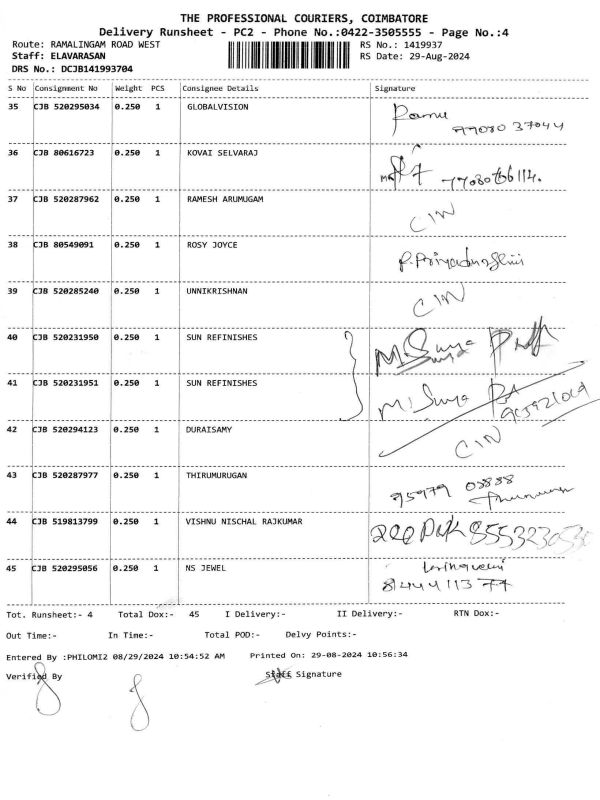 THE PROFESSIONAL COURIERS, COIMBATORE
Delivery Runsheet - PC2 - Phone No.:0422-3505555 - Page No.:4
Route: RAMALINGAM ROAD WEST RS No.: 1419937
Staff: ELAVARASAN RS Date: 29-Aug-2024
DRS No.: DCJB141993704
S No Consignment No Weight PCS Consignee Details Signature
35 CJB 520295034 0.250 1 GLOBALVISION Ramu
37044
36 CJB 80616723 0.250 1 KOVAI SELVARAJ
37 CJB 520287962 0.250 1 RAMESH ARUMUGAM CIN
38 CJB 80549091 0.250 1 ROSY JOYCE
39 CJB 520285240 0.250 1 UNNIKRISHNAN CIN
40 CJB 520231950 0.250 1 SUN REFINISHES M. Surya
41 CJB 520231951 0.250 1 SUN REFINISHES M. Surya
42 CJB 520294123 0.250 1 DURAISAMY CIN
43 CJB 520287977 0.250 1 THIRUMURUGAN 95979 03888
44 CJB 519813799 0.250 1 VISHNU NISCHAL RAJKUMAR
45 CJB 520295056 0.250 1 NS JEWEL
8444113 77
Tot. Runsheet:- 4 Total Dox:- 45 I Delivery:- II Delivery:- RTN Dox:-
Out Time:- In Time:- Total POD:- Delvy Points:-
Entered By :PHILOMI2 08/29/2024 10:54:52 AM Printed On: 29-08-2024 10:56:34
Verified By Staff Signature